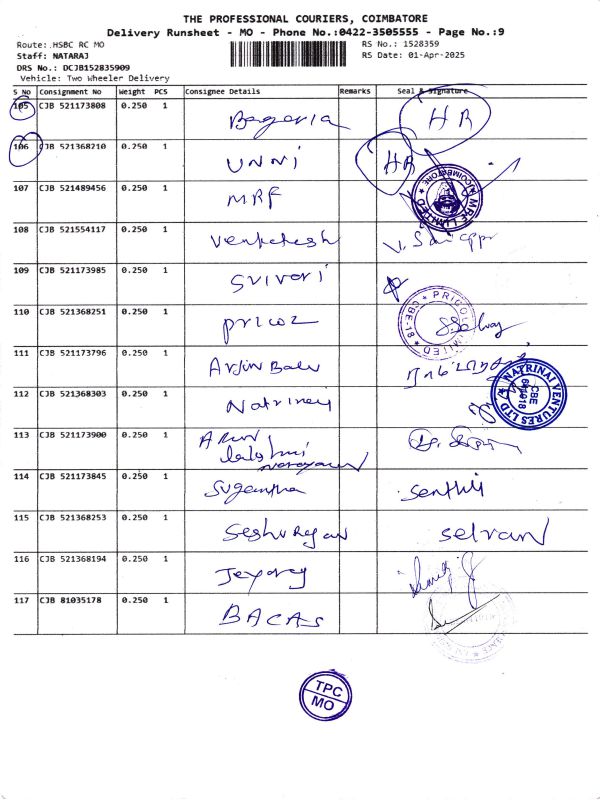 THE PROFESSIONAL COURIERS, COIMBATORE
Delivery Runsheet - MO - Phone No.:0422-3505555 - Page No.:9
Route: HSBC RC MO
RS No.: 1528359
Staff: NATARAJ
RS Date: 01-Apr-2025
DRS No.: DCJB152835909
Vehicle: Two Wheeler Delivery
S No Consignment No Weight PCS Consignee Details Remarks Seal & Signature
105 CJB 521173808 0.250 1 Bageria HR
106 CJB 521368210 0.250 1 UNNi HR
107 CJB 521489456 0.250 1 MRF M.R.F. LIMITED COIMBATORE
108 CJB 521554117 0.250 1 Venketesh
109 CJB 521173985 0.250 1 Srivari
110 CJB 521368251 0.250 1 pricol PRICOL LIMITED CBE-18
111 CJB 521173796 0.250 1 Arjin Balu
112 CJB 521368303 0.250 1 Natrinai NATRINAI VENTURES LTD CBE 641018
113 CJB 521173900 0.250 1 Arun
lakshmi
narayanan
114 CJB 521173845 0.250 1 Sugantha Senthil
115 CJB 521368253 0.250 1 Seshu Rajan selvan
116 CJB 521368194 0.250 1 Jeyaraj
117 CJB 81035178 0.250 1 BACAS
TPC
MO